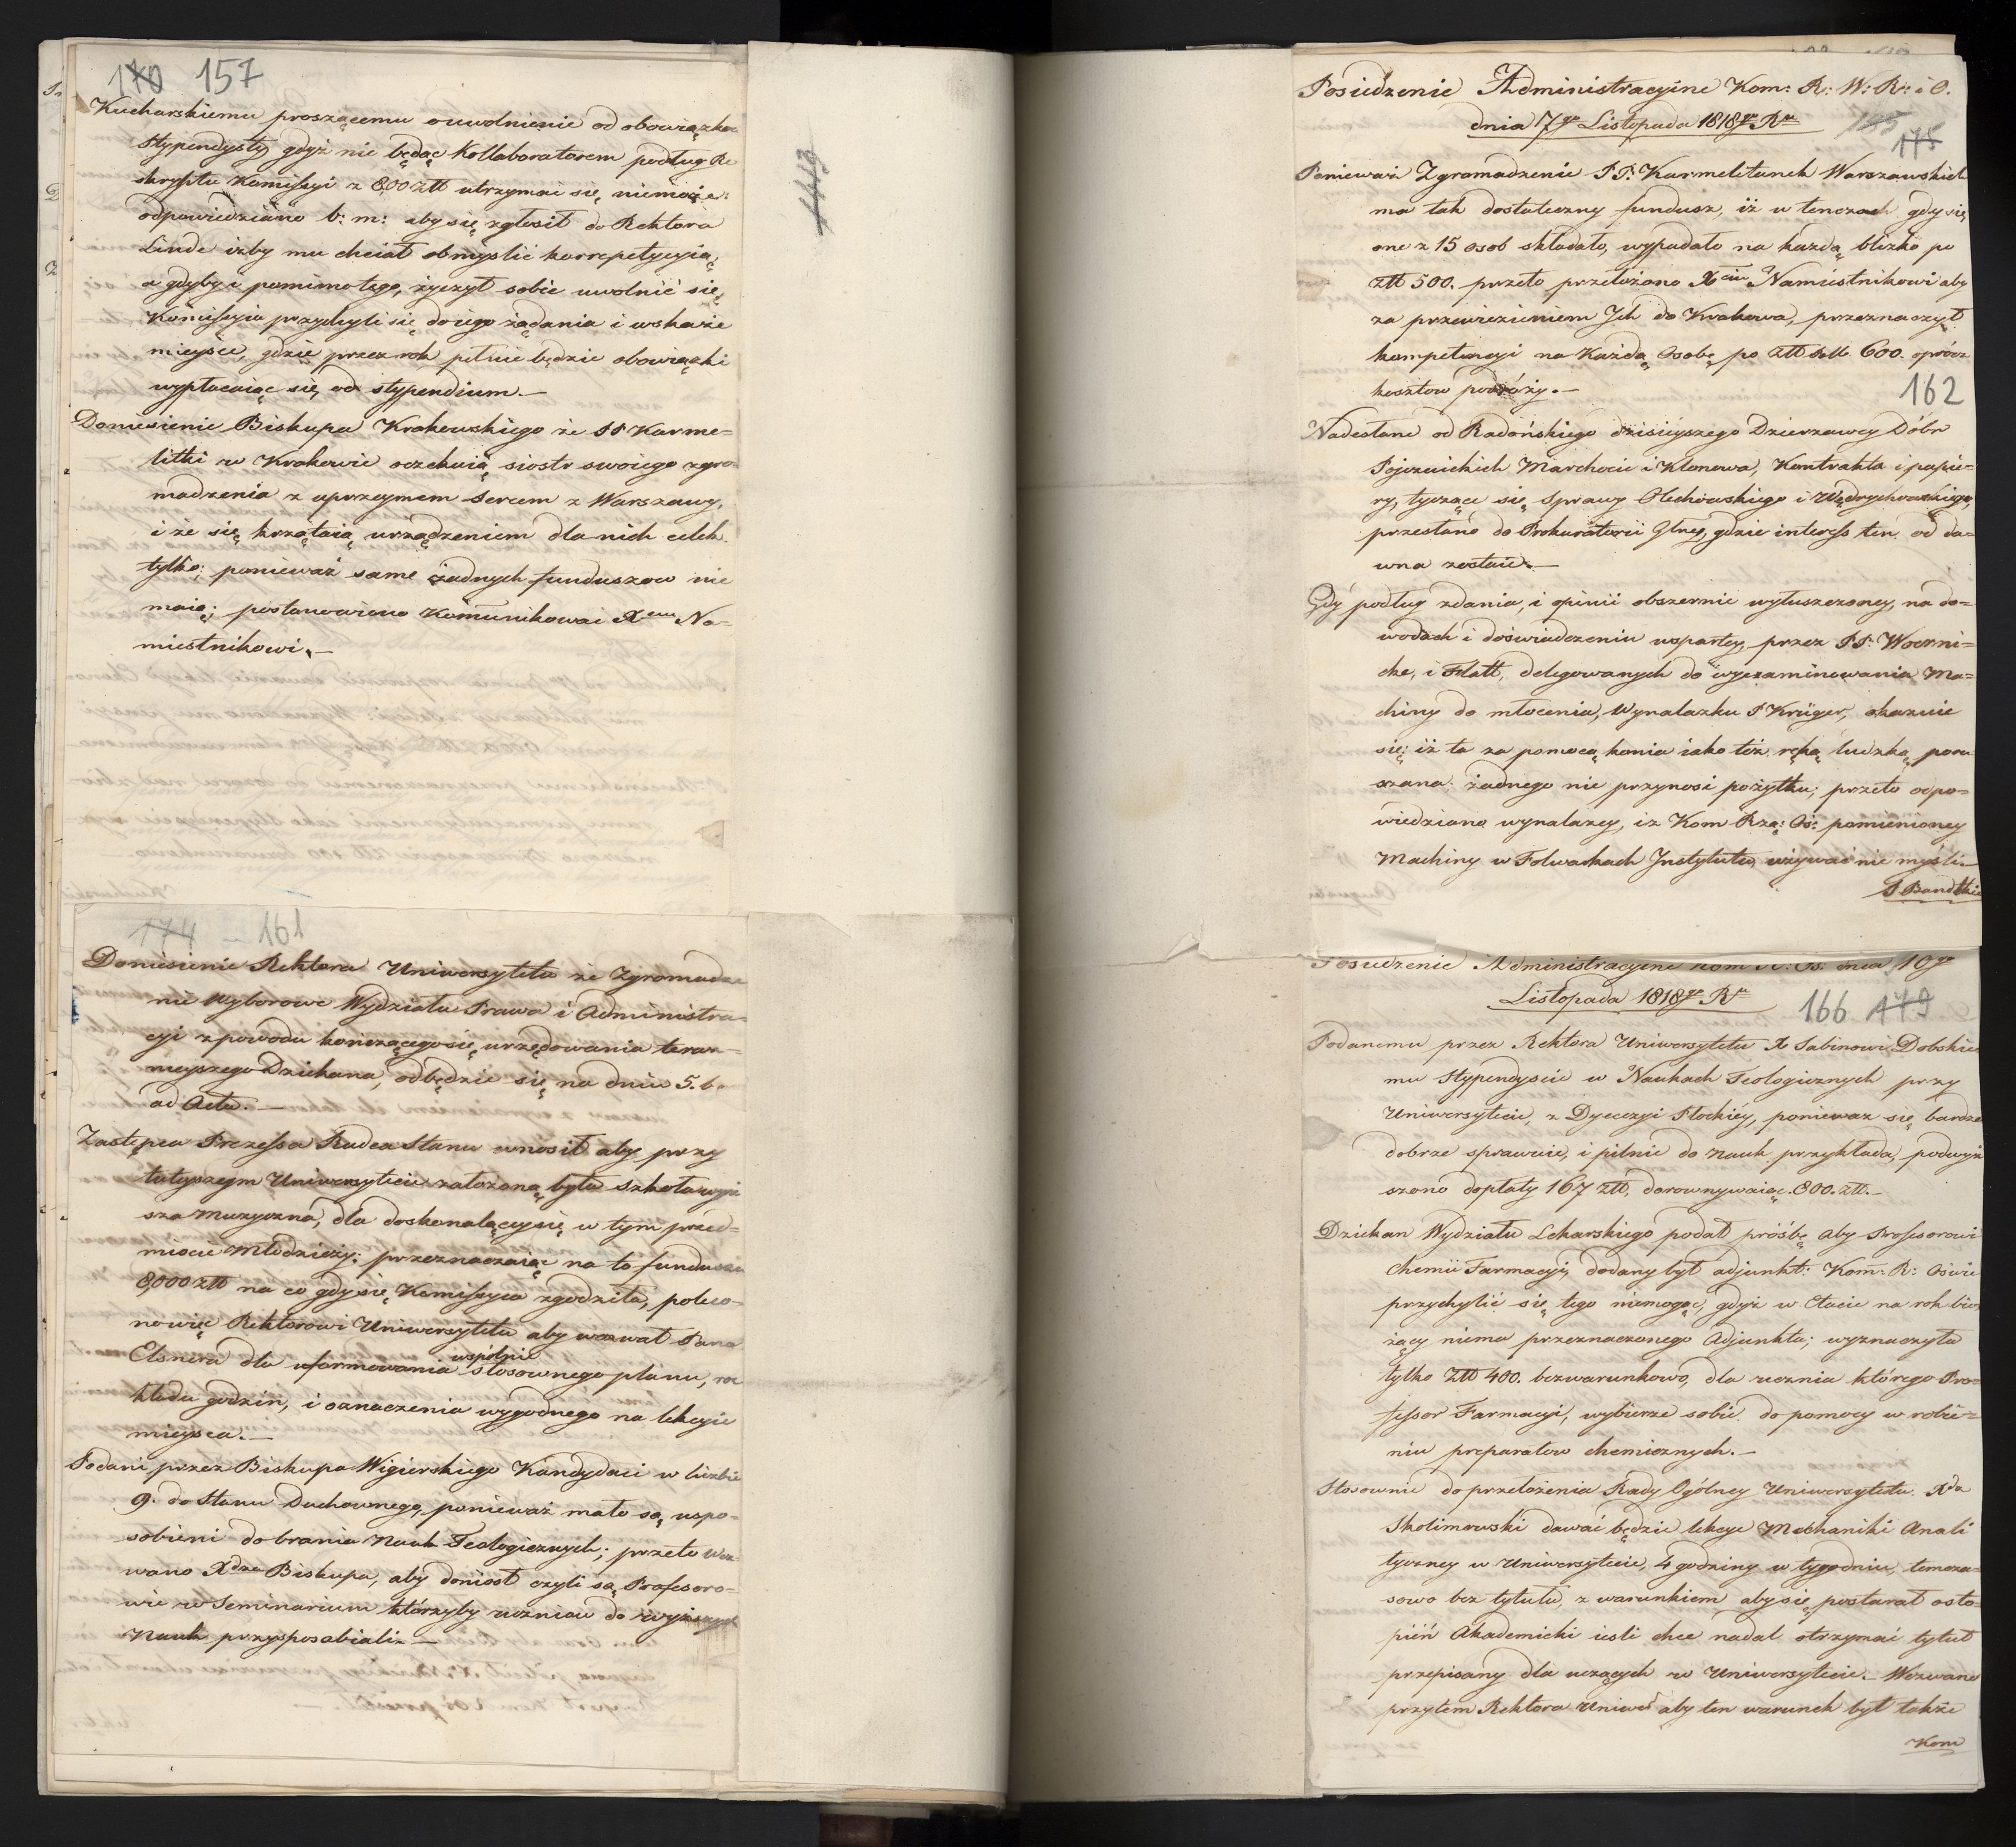 170 157
Kucharskiemu proszącemu o uwolnienie od obowiązków
stypendysty gdyż nie będąc Kollaboratorem podług Re
skryptu Kommissyi z 800 ztt utrzymać się niemoże:
odpowiedziano b: m: aby się zgłosił do Rektora
Linde iżby mu chciał obmyślić korrepetycyią,
a gdyby i pomimo tego, życzył sobie uwolnić się,
Kommissyia przychyli się do iego żądania i wskaże
mieysce, gdzie przez rok pełnić będzie obowiązki
wypłacaiąc się od stypendium.—
Doniesienie Biskupa Krakowskiego że PP Karme=
litki w Krakowie oczekuią siostr swoiego zgro=
madzenia z uprzeymem sercem z Warszawy,
i że się krzątaią urządzeniem dla nich celek
tylko; ponieważ same żadnych funduszow nie
maią; postanowiono Kommunikować Xciu Na=
miestnikowi.—
174 — 161
Doniesienie Rektora Uniwersytetu że Zgromadze
nie wyborowe Wydziału Prawa i Administra=
cyi z powodu konczącego się urzędowania teraz=
nieyszego Dziekana, odbędzie się na dniu 5. b
ad Acta.—
Zastępca Prezessa Radca Stanu wnosił aby przy
tuteyszym Uniwersytecie założoną była szkoła wyż
sza muzyczna, dla doskonalącey się w tym przed=
miocie Młodzieży; przeznaczaiąc na to fundusz
8,000 ztt na co gdy się Kommissyia zgodziła, poleco=
no więc Rektorowi Uniwersytetu aby wezwał Pana
Elsnera dla uformowania wspólnie stosownego planu, roz
kładu godzin, i oznaczenia wygodnego na lekcyie
mieysca.—
Podani przez Biskupa Wigierskiego Kandydaci w liczbie
9. do Stanu Duchownego, ponieważ mało są uspo=
sobieni do brania Nauk Teologicznych; przeto wez=
wano Xdza Biskupa, aby doniosł czyli są Profesoro=
wie w Seminarium którzyby uczniow do wyższych
Nauk przysposabiali.—
Posiedzenie Administracyine Kom: R: W: R: i O.
dnia 17go Listopada 1818go Ru
175
Ponieważ Zgromadzenie PP: Karmelitanek Warszawskich
ma tak dostateczny fundusz, iż w tenczas gdy się
one z 15 osob składało, wypadało na każdą blizko po
ztt 500. przeto przełożono Xciu Namiestnikowi aby
za przewiezieniem Ich do Krakowa, przeznaczył
kompetencyi na każdą Osobę po Ztt 600. oprócz
kosztow podróży.—
162
Nadesłane od Radońskiego dzisieyszego Dzierżawcy Dóbr
Pojezuickich Marchocic i Klonowa, Kontrakta i papie=
ry, tyczące się Sprawy Olechowskiego i Wędrychowskiego,
przesłano do Prokuratorii Glney, gdzie interess ten od da=
wna zostaie.—
Gdy podług zdania, i opinii obszernie wyłuszczoney, na do=
wodach i doświadczeniu wspartey, przez PP: Woerni=
cke, i Flatt, delegowanych do wyexaminowania Ma=
chiny do młocenia, Wynalazku P Krüger, okazuie
się; iż ta za pomocą konia iako też ręką ludzką poru
szana; żadnego nie przynosi pożytku; przeto odpo=
wiedziano wynalazcy, iz Kom Rzą: Oś: pomienioney
Machiny w Folwarkach Instytutu, używać nie myśli.—
P Bandtkie
Posiedzenie Administracyine Kom R: Oś: dnia 10go
Listopada 1818go Ru
166 179
Podanemu przez Rektora Uniwersytetu X Sabinowi Dobskie
mu Stypendyście w Naukach Teologicznych przy
Uniwersytecie, z Dyecezyi Płockiéy, ponieważ się bardzo
dobrze sprawuie, i pilnie do nauk przykłada, podwyż
szono dopłaty 167 ztt, dorownywaiąc 800. ztt.—
Dziekan Wydziału Lekarskiego podał prośbę aby Profesorowi
Chemii Farmacyi, dodany był adjunkt: Kom: R: Oświe
przychylić się tego niemogąc, gdyż w Etacie na rok bie
żący niema przeznaczonego Adjunkta; wyznaczyła
tylko Ztt 400. bezwarunkowo, dla ucznia którego Pro=
fessor Farmacyi, wybierze sobie do pomocy w robie=
niu preparatow chemicznych.—
Stosownie do przełożenia Rady Ogólney Uniwersytetu Xdz
Skolimowski dawać będzie lekcye Mechaniki Anali
tyczney w Uniwersytecie, 4 godziny w tygodniu, temcza=
sowo bez tytułu, z warunkiem aby się postarał o sto=
pień Akademicki iesli chce nadal otrzymać tytuł
przepisany dla uczących w Uniwersytecie.— Wezwano
przytem Rektora Uniwer aby ten warunek był także
Kom